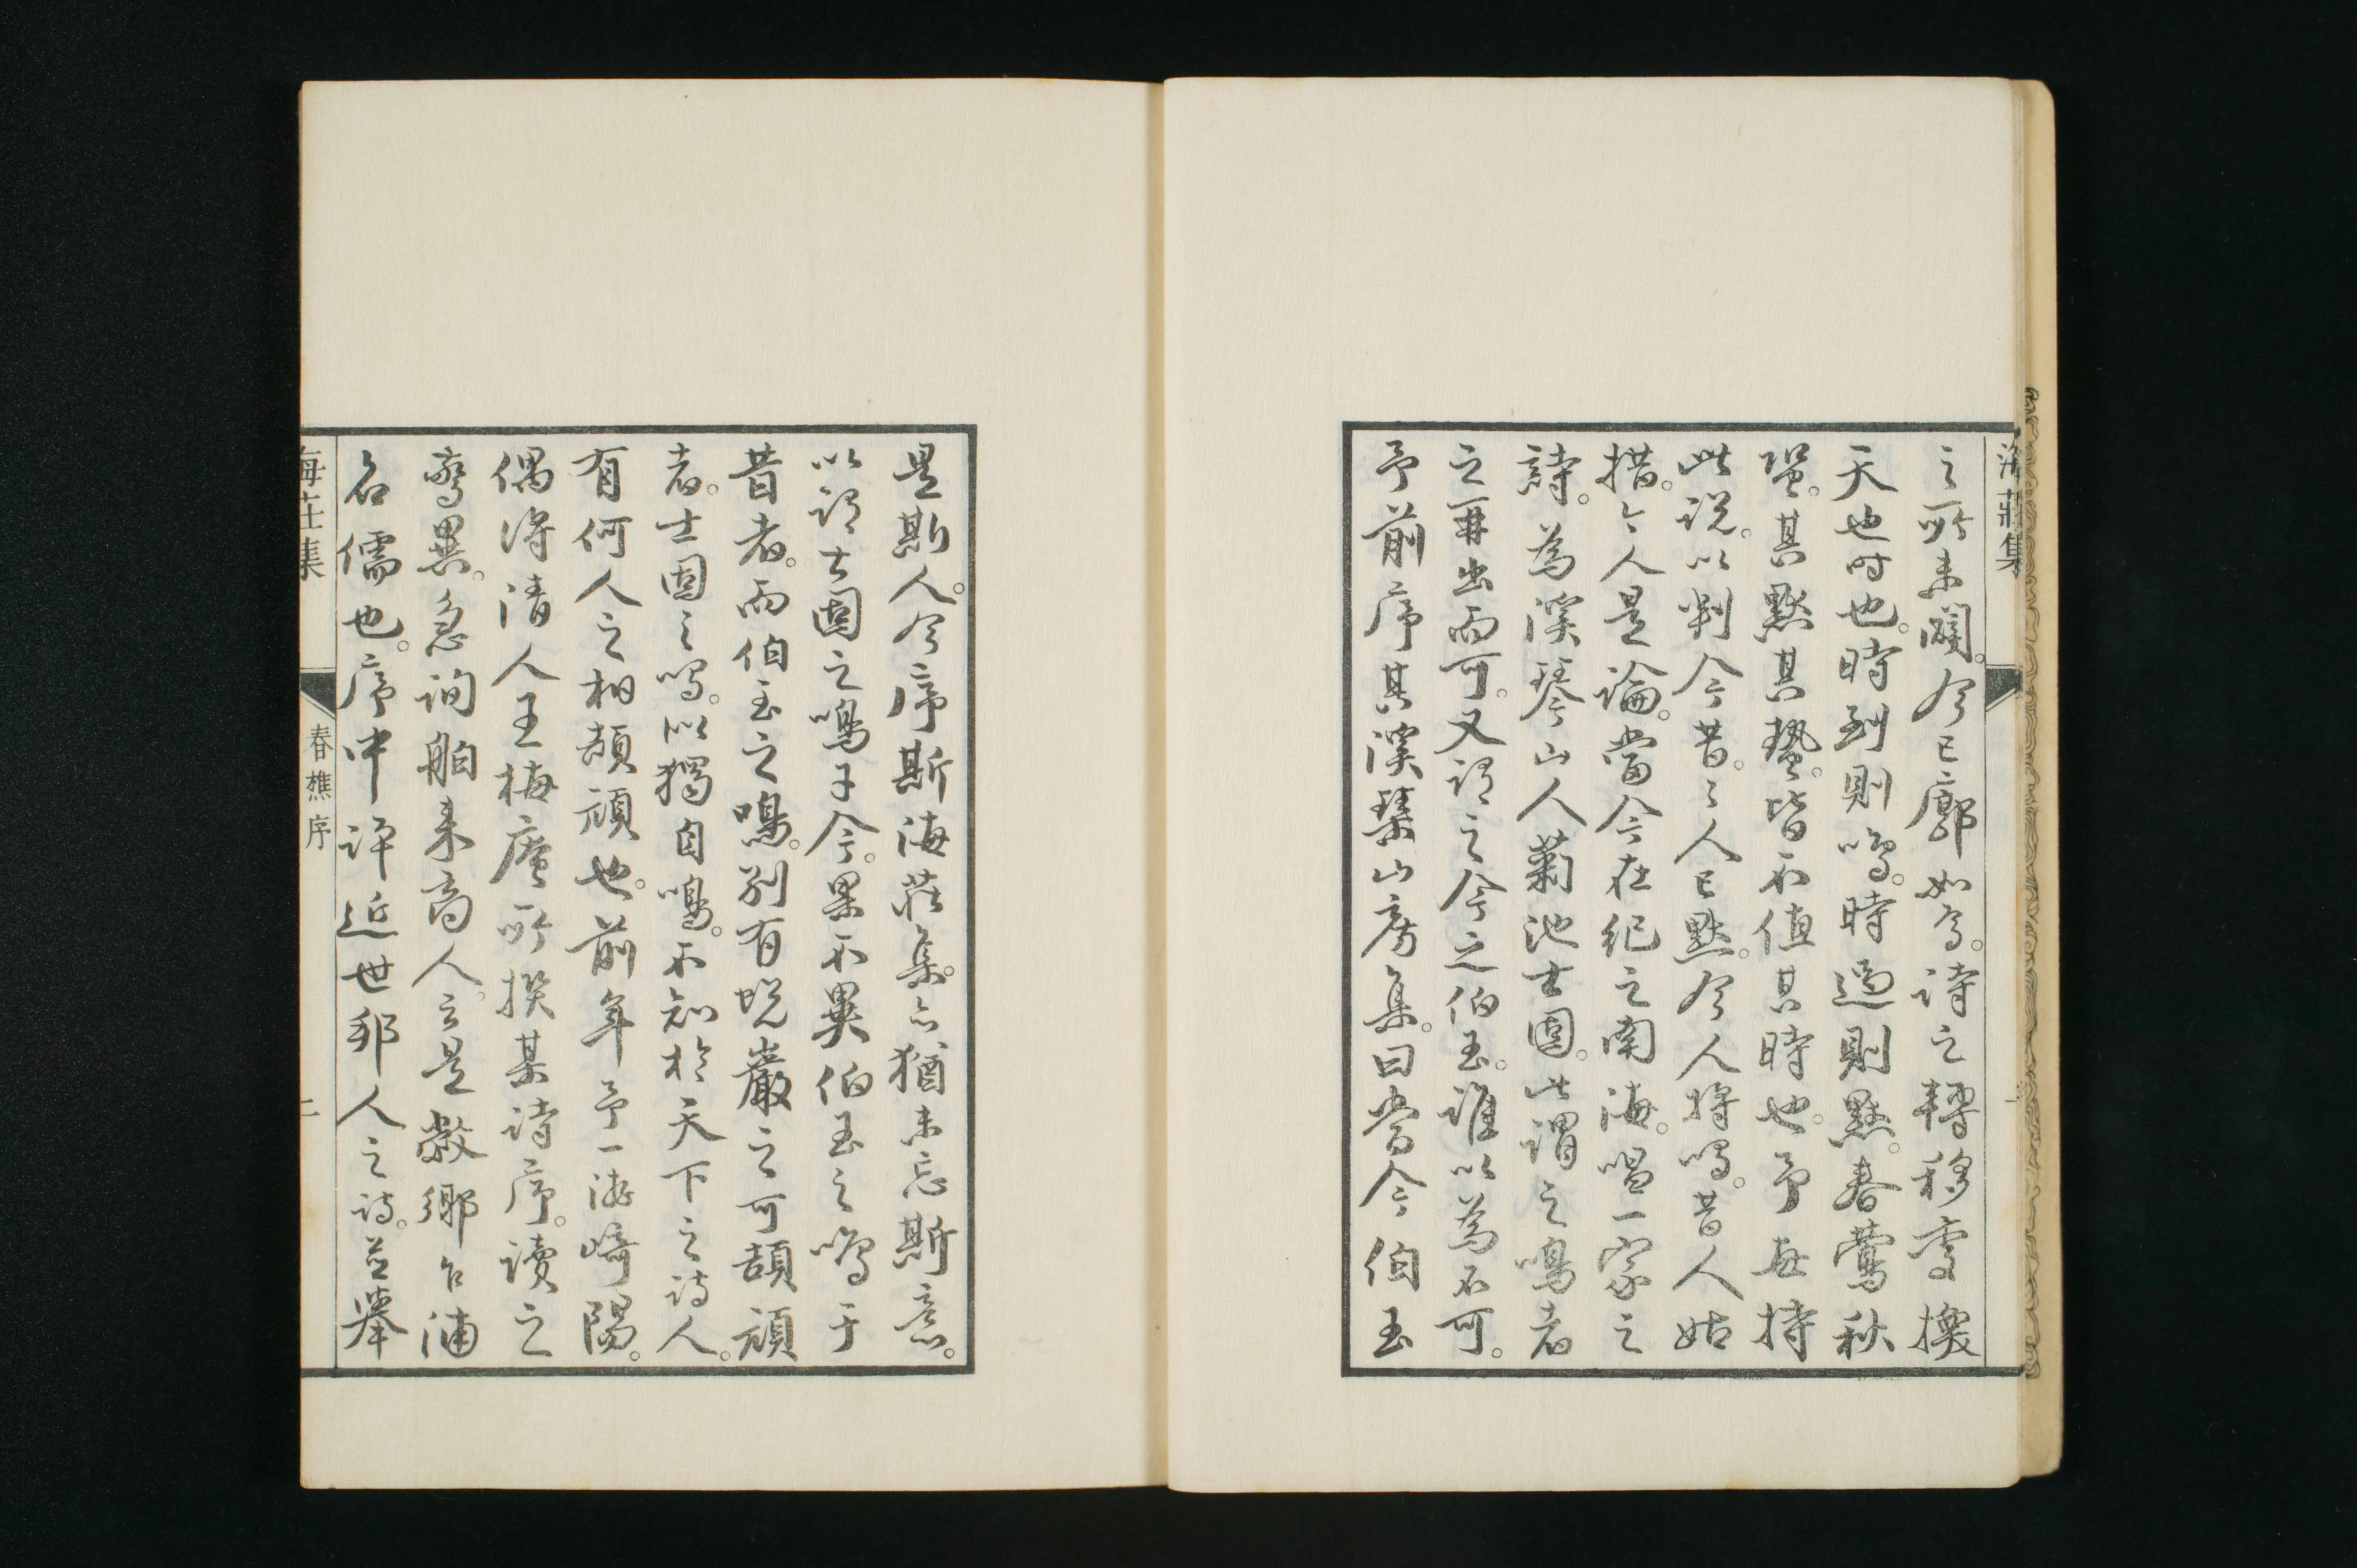 海莊集
之所未闢。今已廓如焉。詩之轉移變換
天也時也。時到則鳴。時過則默。春鶯秋
蛩。其默其蟄。皆不値其時也。予每持
此説。以判今昔。々人已默。今人將鳴。昔人姑
措。今人是論。當今在紀之南海。唱一家之
詩。為溪琴山人菊池士固。此謂之鳴者
之再出而可。又謂之今之伯玉。誰以為不可。
予前序其溪琴山房集。曰當今伯玉
是斯人。今序斯海莊集。亦猶未忘斯意。
以謂士固之鳴于今。果不異伯玉之鳴于
昔者。而伯玉之鳴。別有蜕巖之可頡頏
者。士固之鳴。以獨自鳴。不知於天下之詩人。
有何人之相頡頏也。前年予一游崎陽。
偶得清人王梅庵所撰某詩序。讀之
驚異。急詢舶来商人。云是敝鄉乍浦
名儒也。序中評近世邦人之詩。並舉
海莊集
春樵序
二